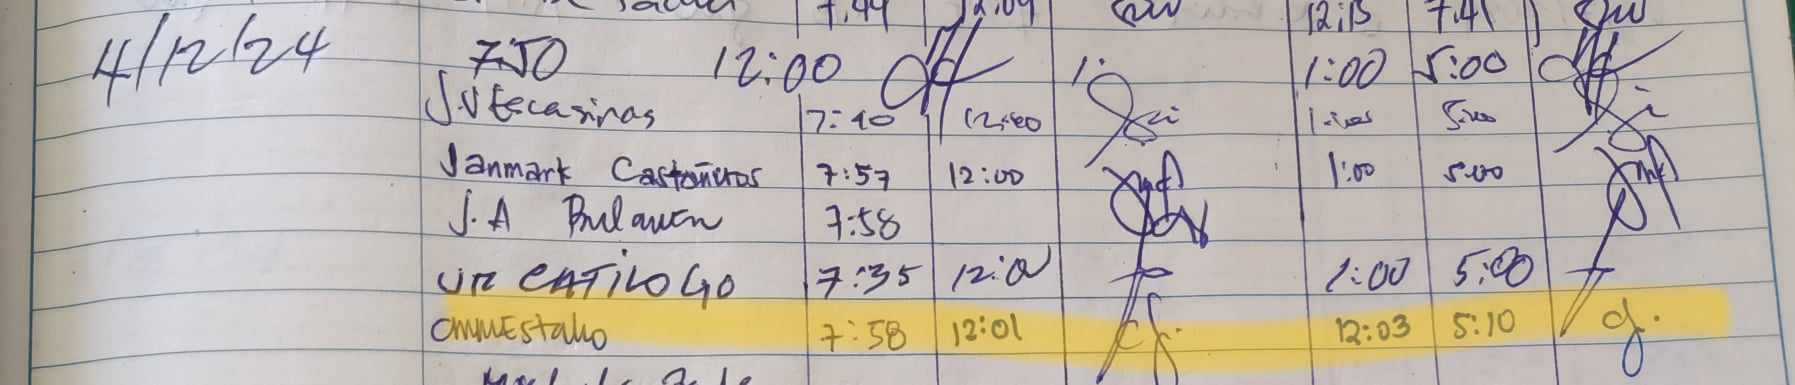 7:44 12:15 7:41
4/12/24 7:50 12:00 1:00 5:00
7:40 12:00 5:00
Janmark Castañeros 7:57 12:00 1:00 5:00
J.A Bulawen 7:58
JR CATILOGO 7:35 12:01 1:00 5:00
CMMEstaño 7:58 12:01 12:03 5:10